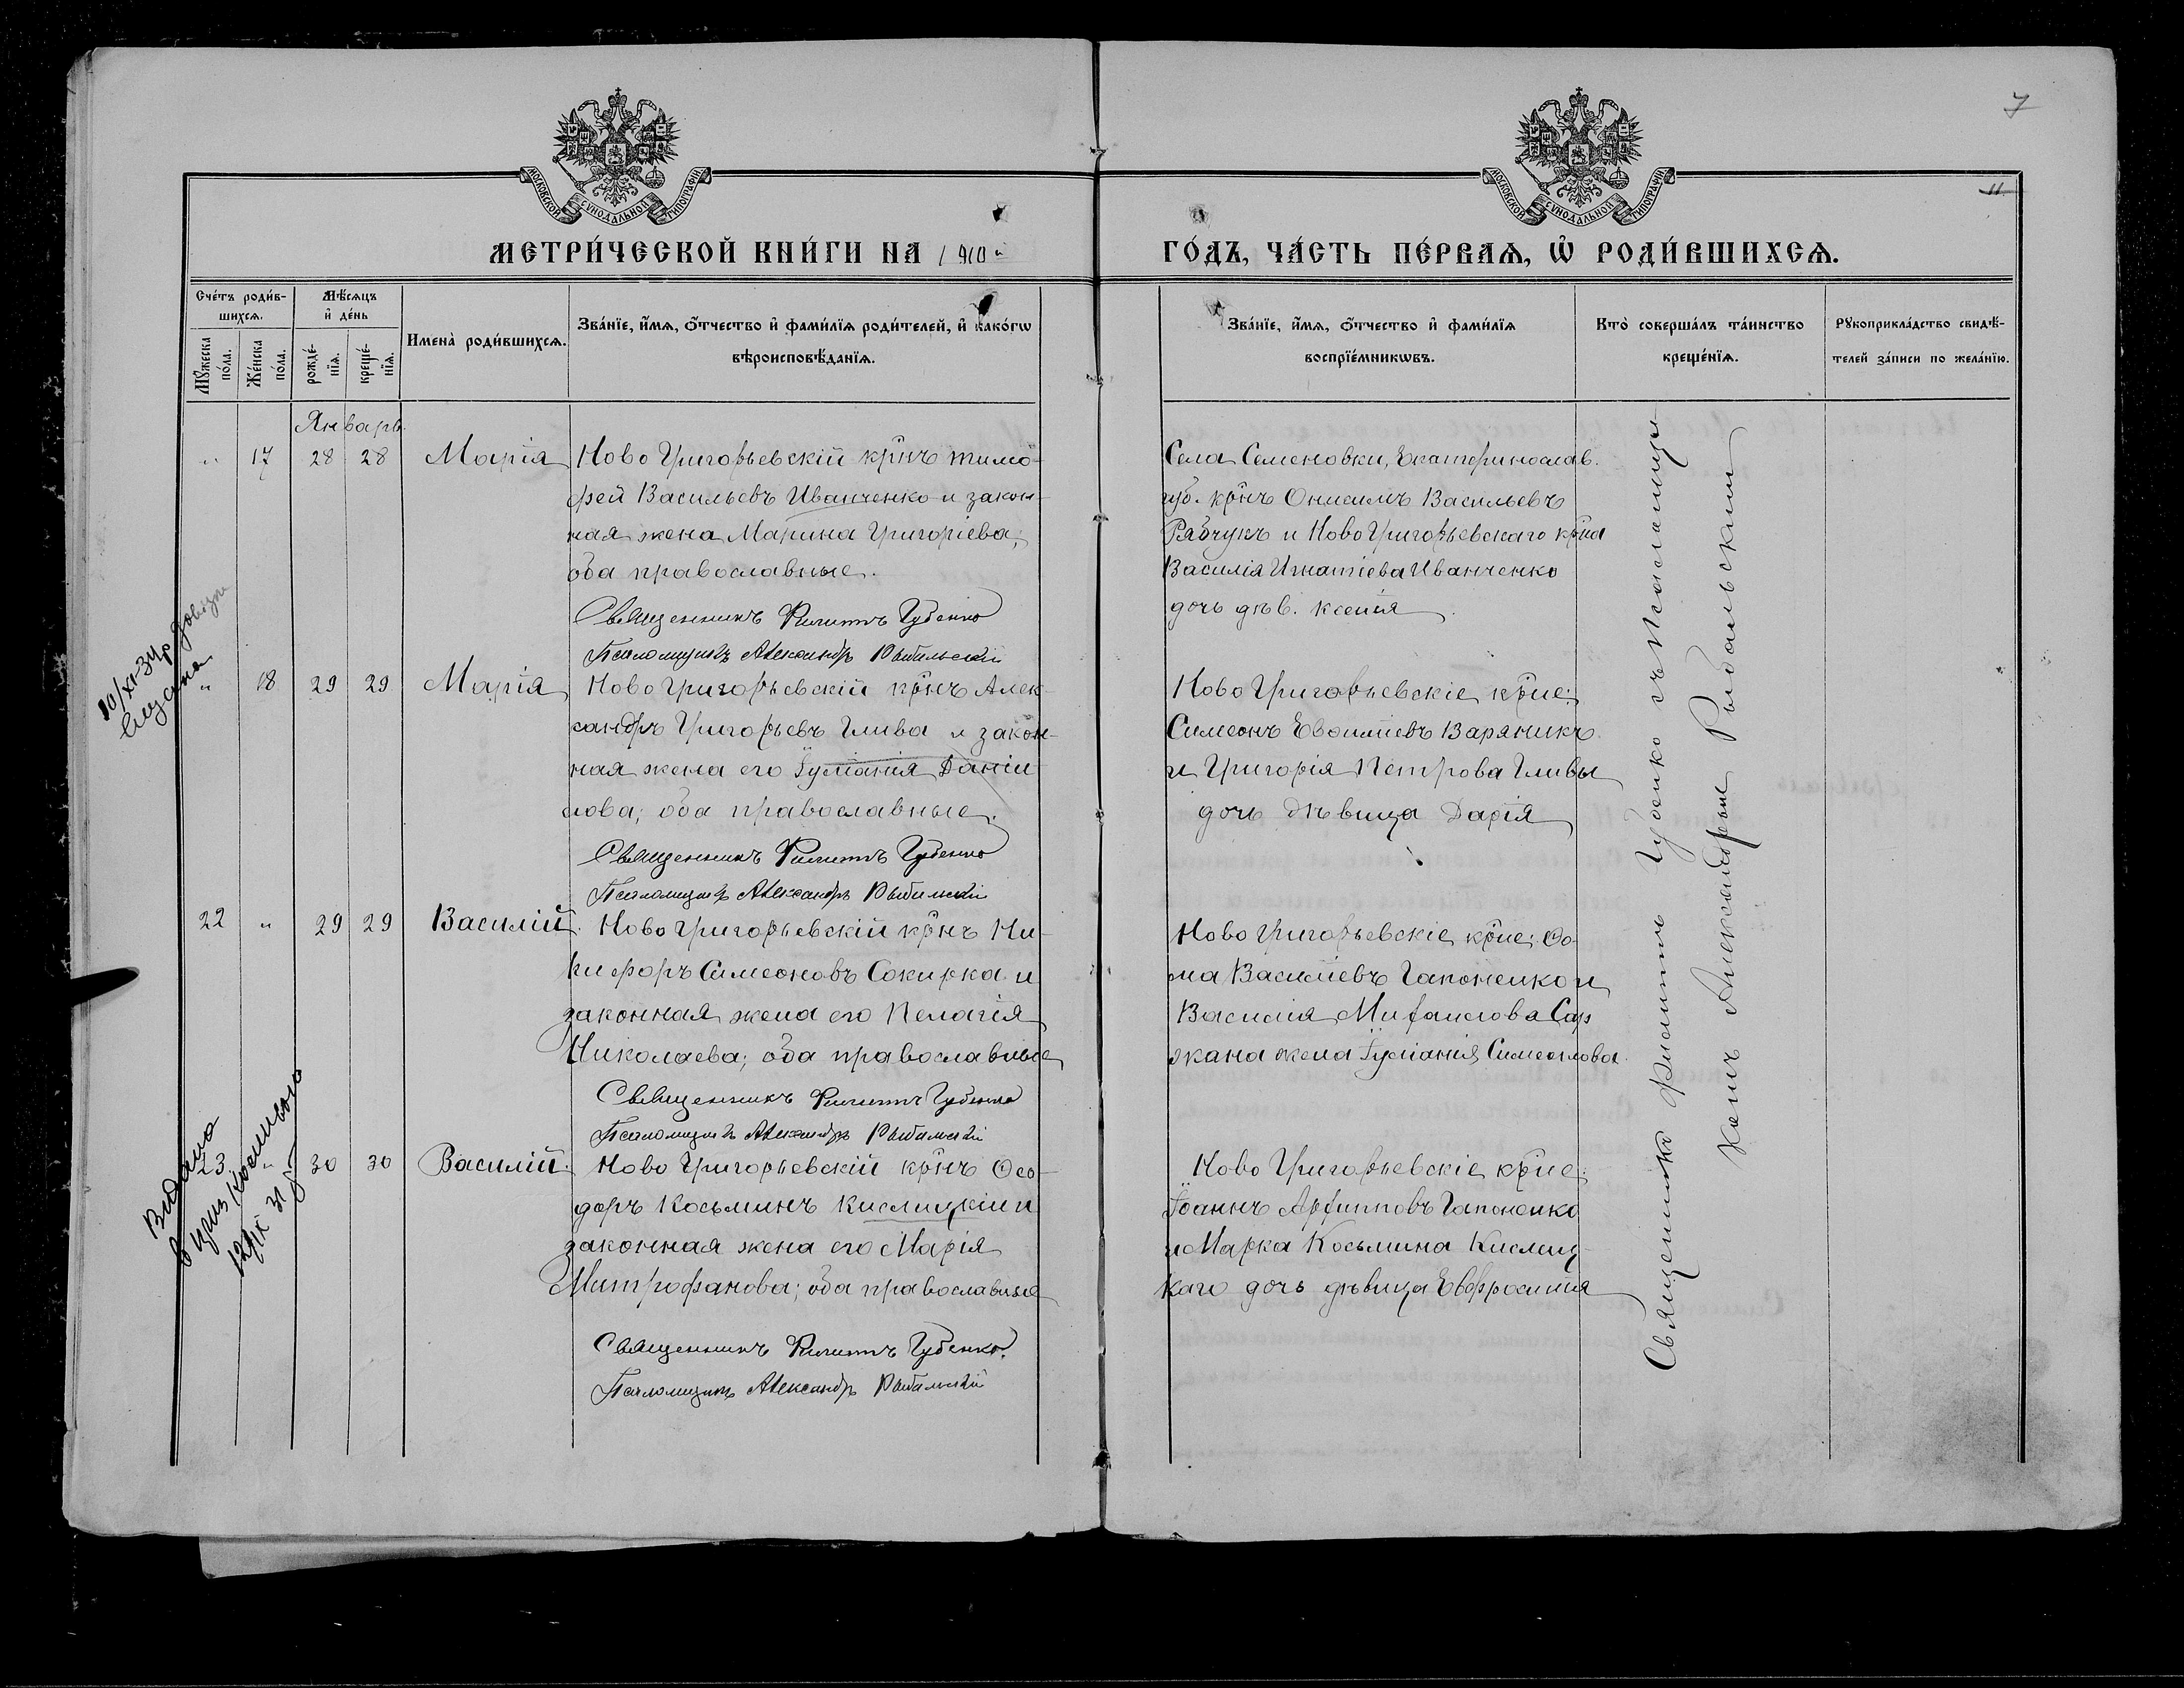 7
МОСКОВСКОЙ СѴНОДАЛЬНОЙ ТИПОГРАФІИ
МОСКОВСКОЙ СѴНОДАЛЬНОЙ ТИПОГРАФІИ
11
МЕТРИ́ЧЕСКОЙ КНИ́ГИ НА 1910й
ГО́ДЪ, ЧА́СТЬ ПЕ́РВАѦ, Ѽ РОДИ́ВШИХСѦ.
Сче́тъ роди́в-
шихсѧ.
Мѣ́сѧцъ
и҆ де́нь
Мꙋ́жеска
по́ла.
Же́нска
по́ла.
рожде́-
нїѧ.
креще́-
нїѧ.
И҆мена̀ роди́вшихсѧ.
Зва́нїе, и҆́мѧ, ѻ҆́тчество и҆ фами́лїѧ роди́телей, и҆ како́гѡ
вѣроисповѣ́данїѧ.
Зва́нїе, и҆́мѧ, ѻ҆́тчество и҆ фами́лїѧ
воспрїе́мникѡвъ.
Кто̀ соверша́лъ та́инство
креще́нїѧ.
Рꙋкоприкла́дство свидѣ́-
телей за́писи по жела́нїю.
Январь.
" 17 28 28 Марія
Ново Григорьевскій крнъ Тимо-
фей Васильевъ Иванченко и закон-
ная жена Марина Григоріева;
оба православные.
Священникъ Филиппъ Губенко
Псаломщикъ Александръ Рыбальскій
Села Семеновки, Екатеринослав.
губ. крнъ Онисимъ Васильевъ
Рябчукъ и Ново Григорьевскаго крна
Василія Игнатіева Иванченко
дочь дѣв. Ксенія
10/XI-34р
" 18 29 29 Марія
Ново Григорьевскій крнъ Алек-
сандръ Григорьевъ Глива и закон-
ная жена его Іуліанія Даніи-
лова; оба православные.
Священникъ Филиппъ Губенко
Псаломщикъ Александръ Рыбальскій
Ново Григорьевскіе крне:
Симеонъ Варяникъ
и Григорія Петрова Гливы
дочь дѣвица Дарія
22 " 29 29 Василій.
Ново Григорьевскій крнъ Ни-
кифоръ Симеоновъ Сокирка и
законная жена его Пелагія
Николаева; оба православные
Священникъ Филиппъ Губенко
Псаломщикъ Александръ Рыбальскій
Ново Григорьевскіе крне: Ѳо-
ма Василіевъ Гапоненко и
Василія Михаилова
жена Іуліанія Симеонова.
Видано
23 " 30 30 Василій.
Ново Григорьевскій крнъ Ѳео-
доръ Косьминъ Кислицкій и
законная жена его Марія
Митрофанова; оба православные
Священникъ Филиппъ Губенко.
Псаломщикъ Александръ Рыбальскій
Ново Григорьевскіе крне:
Іоаннъ Архипповъ Гапоненко
и Марка Косьмина Кислиц-
каго дочь дѣвица Евфросинія
Священникъ Филиппъ Губенко съ Псаломщи-
комъ Александромъ Рыбальскимъ